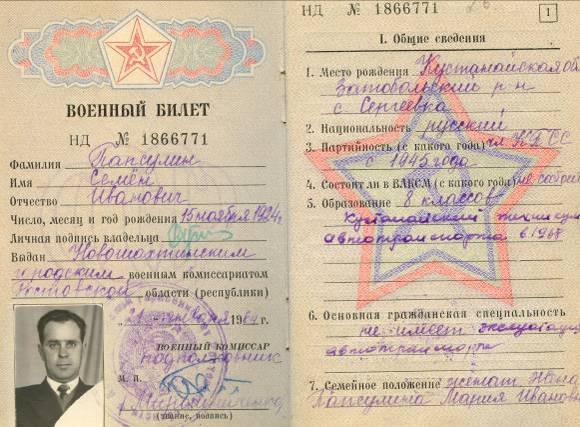 ВОЕННЫЙ БИЛЕТ
НД № 1866771
Фамилия Папсулин
Имя Семён
Отчество Иванович
Число, месяц и год рождения 15 ноября 1924г
Личная подпись владельца
Выдан Новошахтинским
городским военным комиссариатом
Ростовской области (республики)
21 января 1964 г.
ВОЕННЫЙ КОМИССАР
подполковник
М. п.
(звание, подпись)
НД № 1866771
1
I. Общие сведения
1. Место рождения Кустанайская об
Затобольский р-н
с Сергеевка
2. Национальность русский
3. Партийность (с какого года) чл КПСС
с 1945 года
4. Состоит ли в ВЛКСМ (с какого года) не
5. Образование 8 классов
Кустанайский техникум
автотранспорта в 1968
6. Основная гражданская специальность
не имеет
автотранспорта
7. Семейное положение женат Жена
Папсулина Мария Иванов